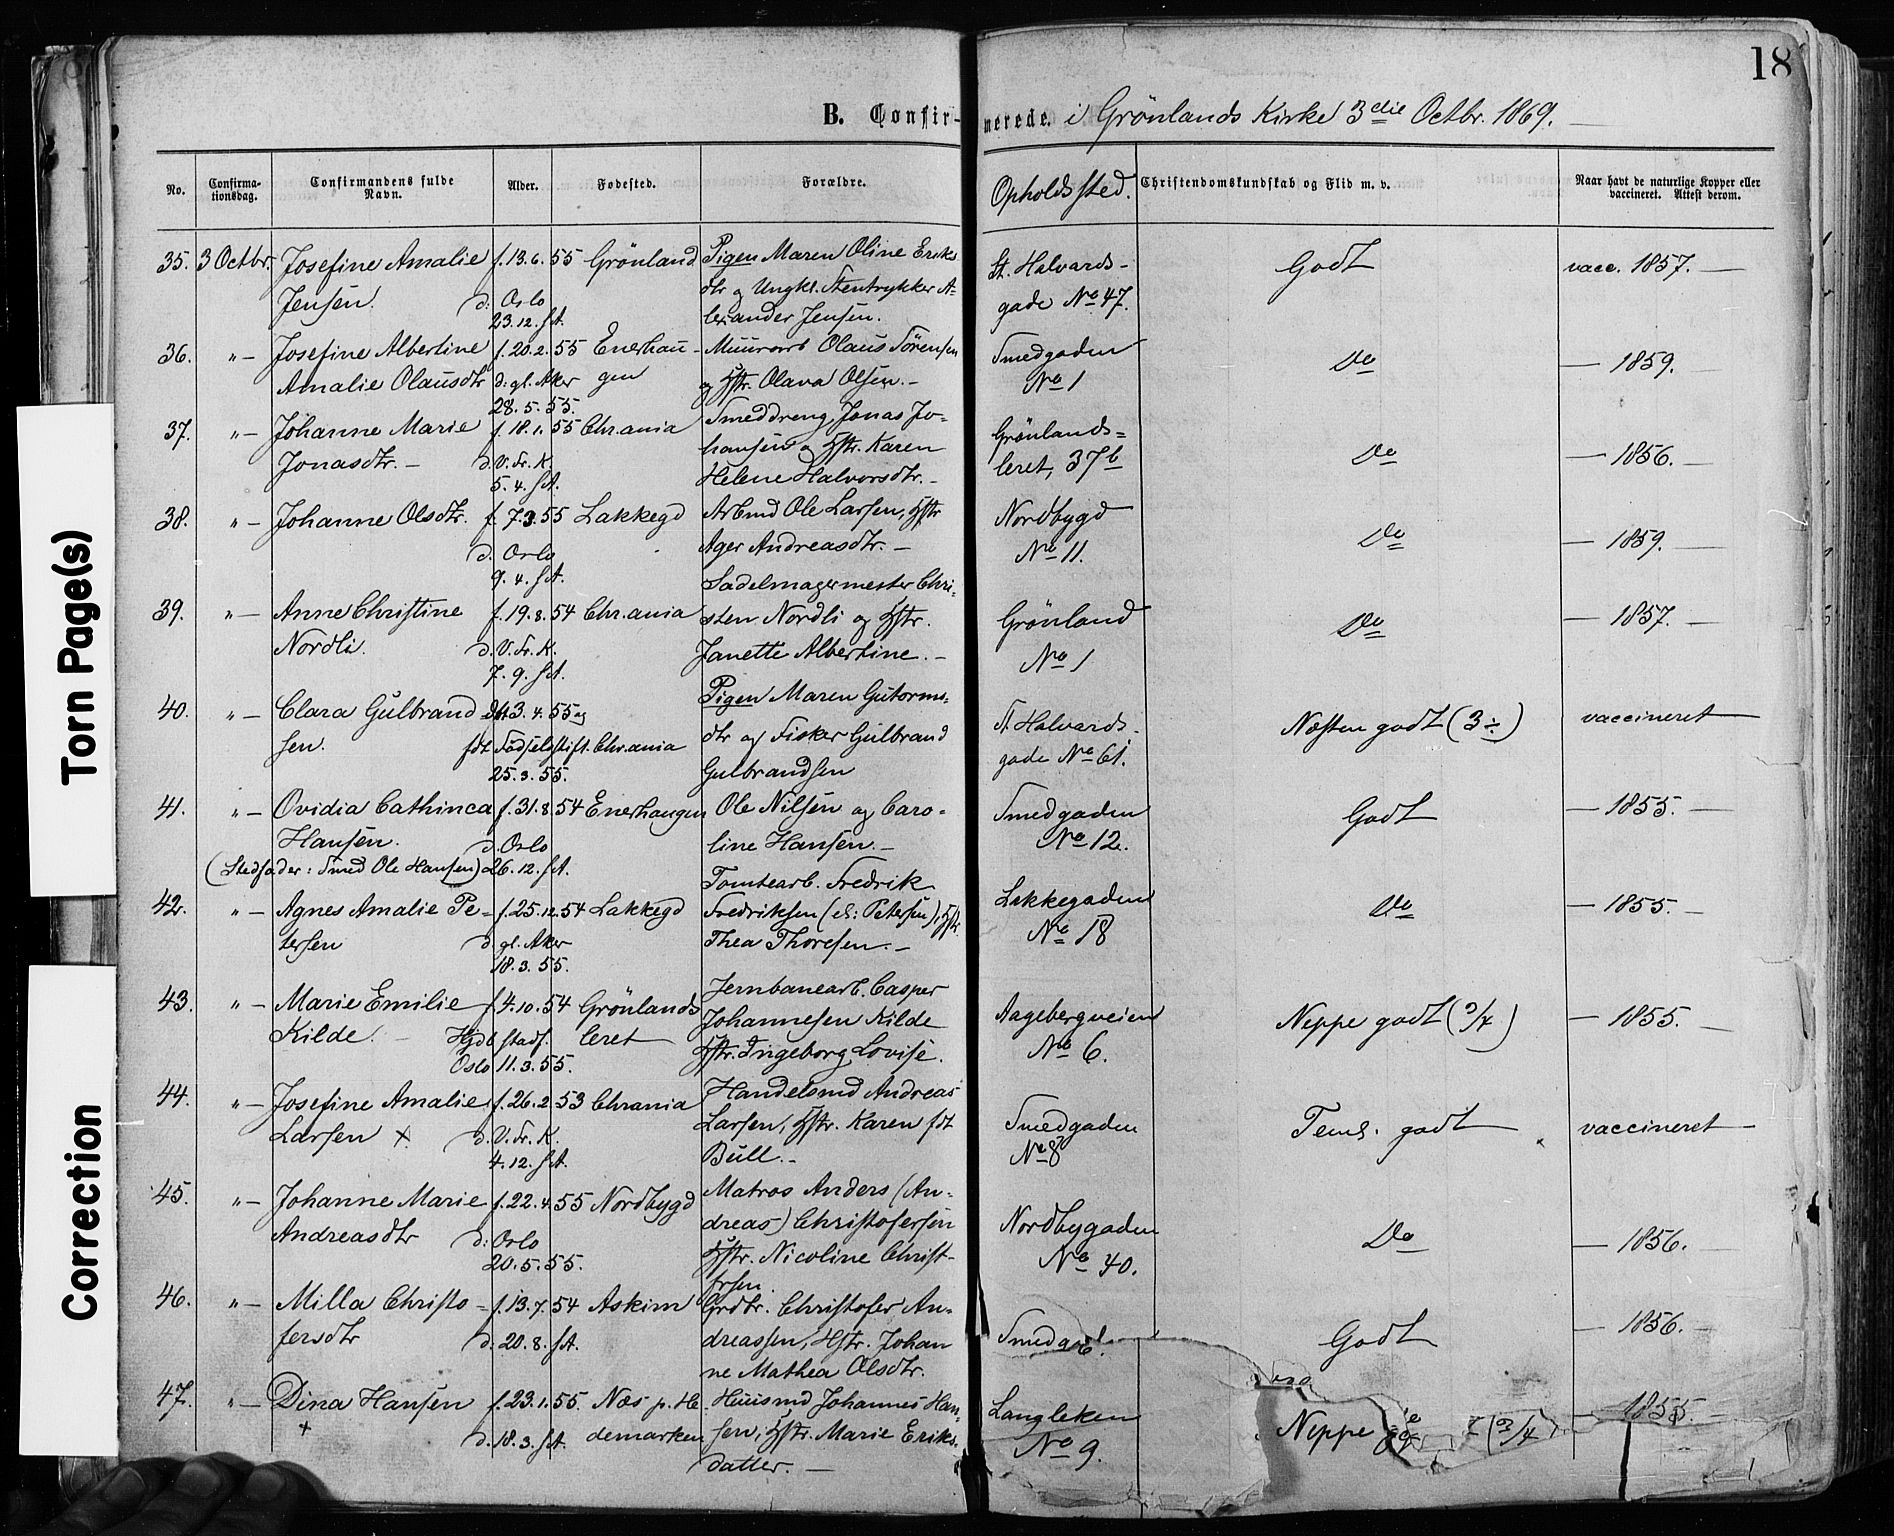 18
B. Confirmerede. i Grönlands Kirke 3die Octbr. 1869.
No. Confirmationsdag. Confirmandens fulde Navn. Alder. Fødested. Forældre. Opholdssted. Christendomskundskab og Flid m. v. Naar havt de naturlige Kopper eller vaccineret. Attest derom.
35. 3 Octbr. Josefine Amalie f. 13.6.55 Grönland Pigen Maren Oline Eriks St. Halvards- Godt vacc. 1857. —
Jensen. d: Oslo dtr og Ungkl. Stentrykker A- gade No 47.
23.12. s.A. lexander Jensen.
36. "— Josefine Albertine f. 20.2.55 Enerhau- Muurarb Olaus Sörensen Smedgaden Do — 1859.
Amalie Olausdtr d: gl. Aker gen og Hstr. Olava Olsen. — No 1
28.5.55.
37. "— Johanne Marie f. 18.1.55 Chr.ania Smeddreng Jonas Jo- Grönlands= Do — 1856. —
Jonasdtr. — d. V. Fr. K. hansen og Hstr. Karen leret, 37b
5.4. s.A. Helene Halvorsdtr. —
38. "— Johanne Olsdtr. f. 7.3.55 Lakkegd Arbmd Ole Larsen, Hstr Nordbygd Do — 1859. —
d. Oslo Ager Andreasdtr. — No 11.
9.4. s.A.
39. "— Anne Christine f. 19.8.54 Chr.ania Sadelmagermester Chri- Grönland Do — 1857. —
Nordli. d. V. Fr. K. sten Nordli og Hstr. No 1
7.9. s.A. Janette Albertine. —
40. "— Clara Gulbrand- 3.4.55 og Pigen Maren Gutorms- St. Halvards- Næsten godt (3÷) vaccineret —
sen. fdt Födselsstift. Chr.ania dtr og Fisker Gulbrand gade No 61.
25.3.55. Gulbrandsen
41. "— Ovidia Cathinca f. 31.8.54 Enerhaugen Ole Nilsen og Caro- Smedgaden Godt — 1855. —
Hansen. d. Oslo line Hansen. — No 12.
(Stedfader: Smed Ole Hansen) 26.12. s.A.
42. "— Agnes Amalie Pe- f. 25.12.54 Lakkegd Tomtearb. Fredrik Lakkegaden Do — 1855. —
tersen d. gl. Aker Fredriksen (el: Petersen), Hstr No 18
18.3.55. Thea Thoresen. —
43. "— Marie Emilie f. 4.10.54 Grönlands Jernbanearb. Casper Aagebergveien Neppe godt (3/4) — 1855. —
Kilde. — Hjdb stadf. leret Johannesen Kilde No 6.
Oslo 11.3.55. Hstr. Ingeborg Lovise.
44. "— Josefine Amalie f. 26.2.53 Chrania Handelsmd Andreas Smedgaden Teml. godt vaccineret —
Larsen × d. V. Fr. K. Larsen, Hstr. Karen fdt No 8
4.12. s.A. Bull. —
45. "— Johanne Marie f. 22.4.55 Nordbygd Matros Anders (An- Nordbygaden Do — 1856. —
Andreasdtr d: Oslo dreas) Christofersen No 40.
20.5.55. Hstr. Nicoline Christ-
frsen.
46. "— Milla Christo- f. 13.7.54 Askim Grdbr. Christofer An- Smedgd. Godt — 1856. —
fersdtr d. 20.8. s.A. dreassen, Hstr. Johan
ne Mathea Olsdtr.
47. "— Dina Hansen f. 23.1.55. Næs p. He- Huusmd Johannes Han- Langleken Neppe (3/4) 1855. —
+ d. 18.3. s.A. demarken sen, Hstr. Marie Eriks- No 9.
datter. —
Torn Page(s)
Correction